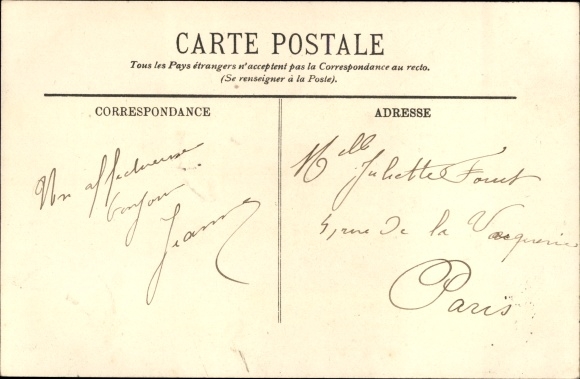 CARTE POSTALE
Tous les Pays étrangers n'acceptent pas la Correspondance au recto.
(Se renseigner à la Poste).
CORRESPONDANCE
Un affectueuse
bonjour
Jeanne
ADRESSE
Melle Juliette
rue de la Vacquerie
Paris